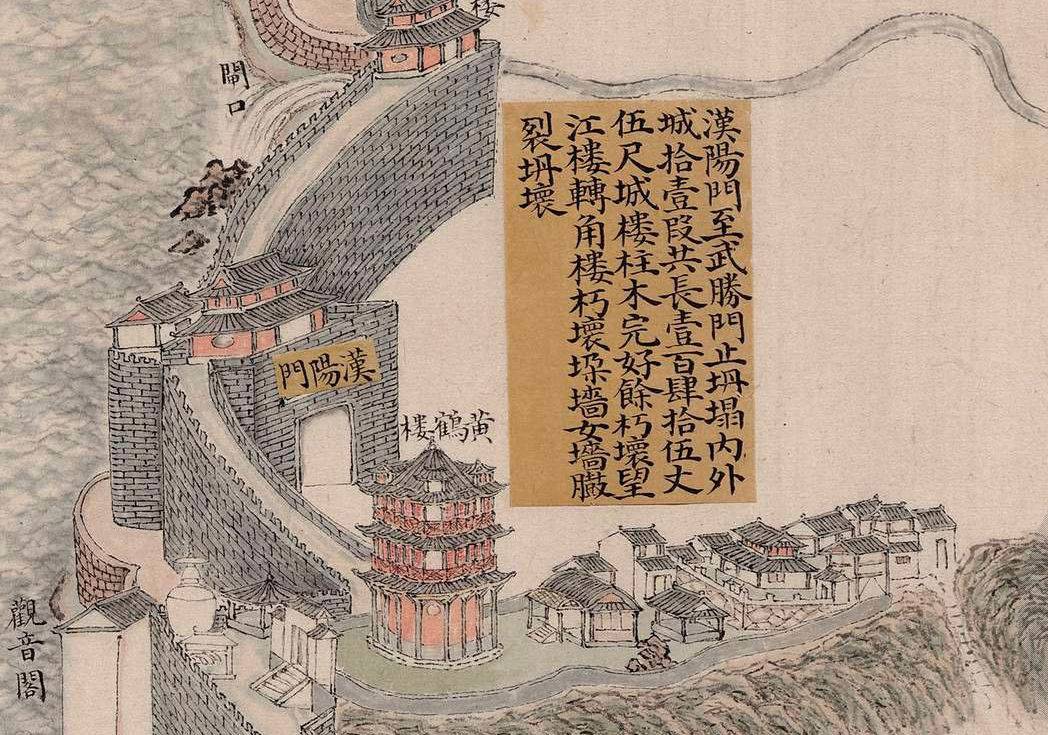 漢陽門至武勝門止坍塌内外
城拾壹段共長壹百肆拾伍丈
伍尺城楼柱木完好餘朽壞望
江楼轉角楼朽壞垜墻女墻臌
裂坍壞
楼
閘口
漢陽門
黄鶴楼
觀音閣